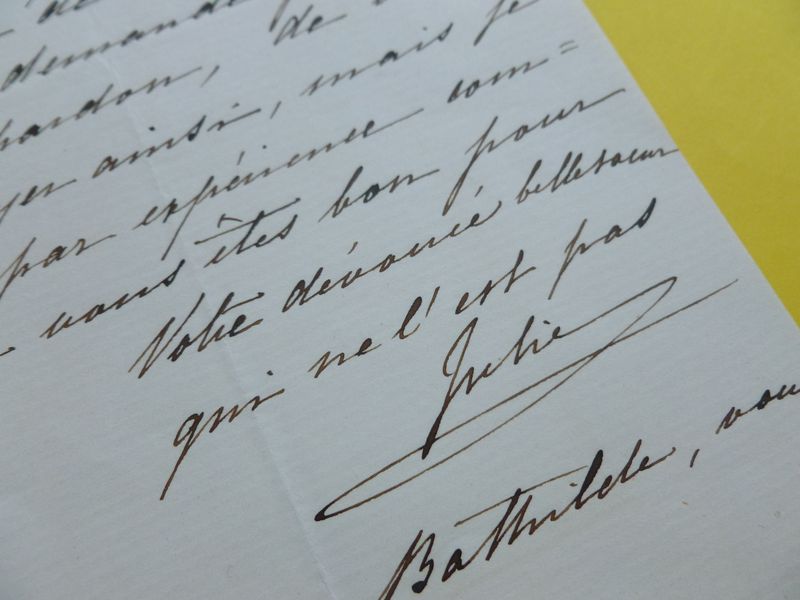 de
demande
pardon, de
yer ainsi, mais je
par expérience com=
vous êtes bon pour
Votre dévouée bellesoeur
qui ne l'est pas
Julie
Bathilde, vou